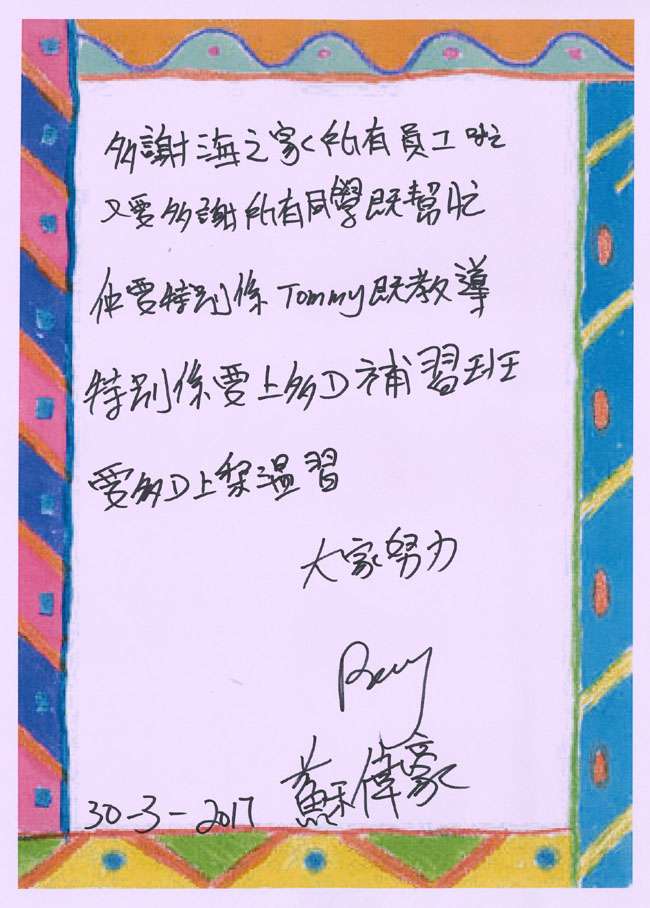 多謝海之家所有員工啦
又要多謝所有同學既幫忙
仲要特別係Tommy既教導
特別係要上多D補習班
要多D上黎溫習
大家努力
Ray
30-3-2017 蘇偉豪